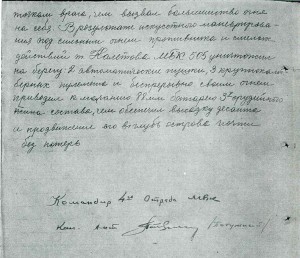 точкам врага, чем вызвал большинство огня
на себя. В результате искусстного маневрирова-
ния под сильным огнем противника и смелых
действий т. Колотова МБК 505 уничтожил
на берегу 2 автоматические пушки, 3 крупнокали-
берных пулемета и беспрерывно своим огнем
приводил к молчанию 88 мм батарею 3х орудийного
состава, чем обеспечил высадку десанта
и продвижение его вглубь острова почти
без потерь
Командир 4го Отряда МБК
Кап. лейт.